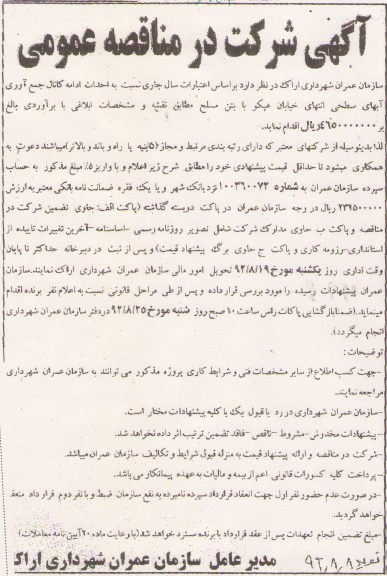 آگهی شرکت در مناقصه عمومی
سازمان عمران شهرداری اراک در نظر دارد براساس اعتبارات سال جاری نسبت به احداث ادامه کانال جمع آوری
آبهای سطحی انتهای خیابان هپکو با بتن مسلح مطابق نقشه و مشخصات ابلاغی با برآوردی بالغ
ریال اقدام نماید.
لذا بدینوسیله از شرکتهای معتبر که دارای رتبه بندی مرتبط و مجاز (۵ابنیه یا راه و باند و بالاتر)میباشند دعوت به
همکاری میشود تا حداقل قیمت پیشنهادی خود را مطابق شرح زیر اعلام و با واریز ۵٪ مبلغ مذکور به حساب
سپرده سازمان عمران به شماره ۱۰۰۳۶۰۰۷۲ نزد بانک شهر و یا یک فقره ضمانت نامه بانکی معتبر به ارزش
۲۳۲۵۰۰۰۰۰ ریال در وجه سازمان عمران در پاکت دربسته گذاشته (پاکت الف: حاوی تضمین شرکت در
مناقصه و پاکت ب حاوی مدارک شرکت شامل تصویر روزنامه رسمی -اساسنامه -آخرین تغییرات تاییده از
استانداری-رزومه کاری و پاکت ج حاوی برگ پیشنهاد قیمت) و پس از ثبت در دبیرخانه حداکثر تا پایان
وقت اداری روز یکشنبه مورخ ۹۲/۸/۱۹ تحویل امور مالی سازمان عمران شهرداری اراک نمایند.سازمان
عمران پیشنهادات رسیده را مورد بررسی قرار داده و پس از طی مراحل قانونی نسبت به اعلام نفر برنده اقدام
مینماید.(ضمنا بازگشایی پاکات راس ساعت ۱۰ صبح روز شنبه مورخ ۹۲/۸/۲۵ در دفتر سازمان عمران شهرداری
انجام میگردد).
توضیحات :
-جهت کسب اطلاع از سایر مشخصات فنی و شرایط کاری پروژه مذکور می توانند به سازمان عمران شهرداری
مراجعه نمایند.
-سازمان عمران شهرداری در رد یا قبول یک یا کلیه پیشنهادات مختار است.
-پیشنهادات مخدوش-مشروط -ناقص -فاقد تضمین ترتیب اثر داده نخواهد شد.
-شرکت در مناقصه و ارائه پیشنهاد قیمت به منزله قبول شرایط و تکالیف سازمان عمران میباشد.
-پرداخت کلیه کسورات قانونی اعم از بیمه و مالیات به عهده پیمانکار می باشد.
-در صورت عدم حضور نفر اول جهت انعقاد قرارداد سپرده نامبرده به نفع سازمان ضبط و با نفر دوم قرارداد منعقد
خواهد گردید.
-مبلغ تضمین انجام تعهدات پس از عقد قرارداد با برنده مسترد خواهد شد(با رعایت ماده ۲۰ آیین نامه معاملات)
مدیر عامل سازمان عمران شهرداری اراک
۹۲،۸،۸